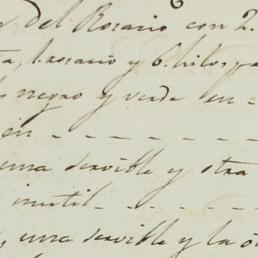 del Rosario con 2.
ta, 1. rosario y 6. hilos
negro y verde en
en
una servible y otra
inutil
una servible y la o